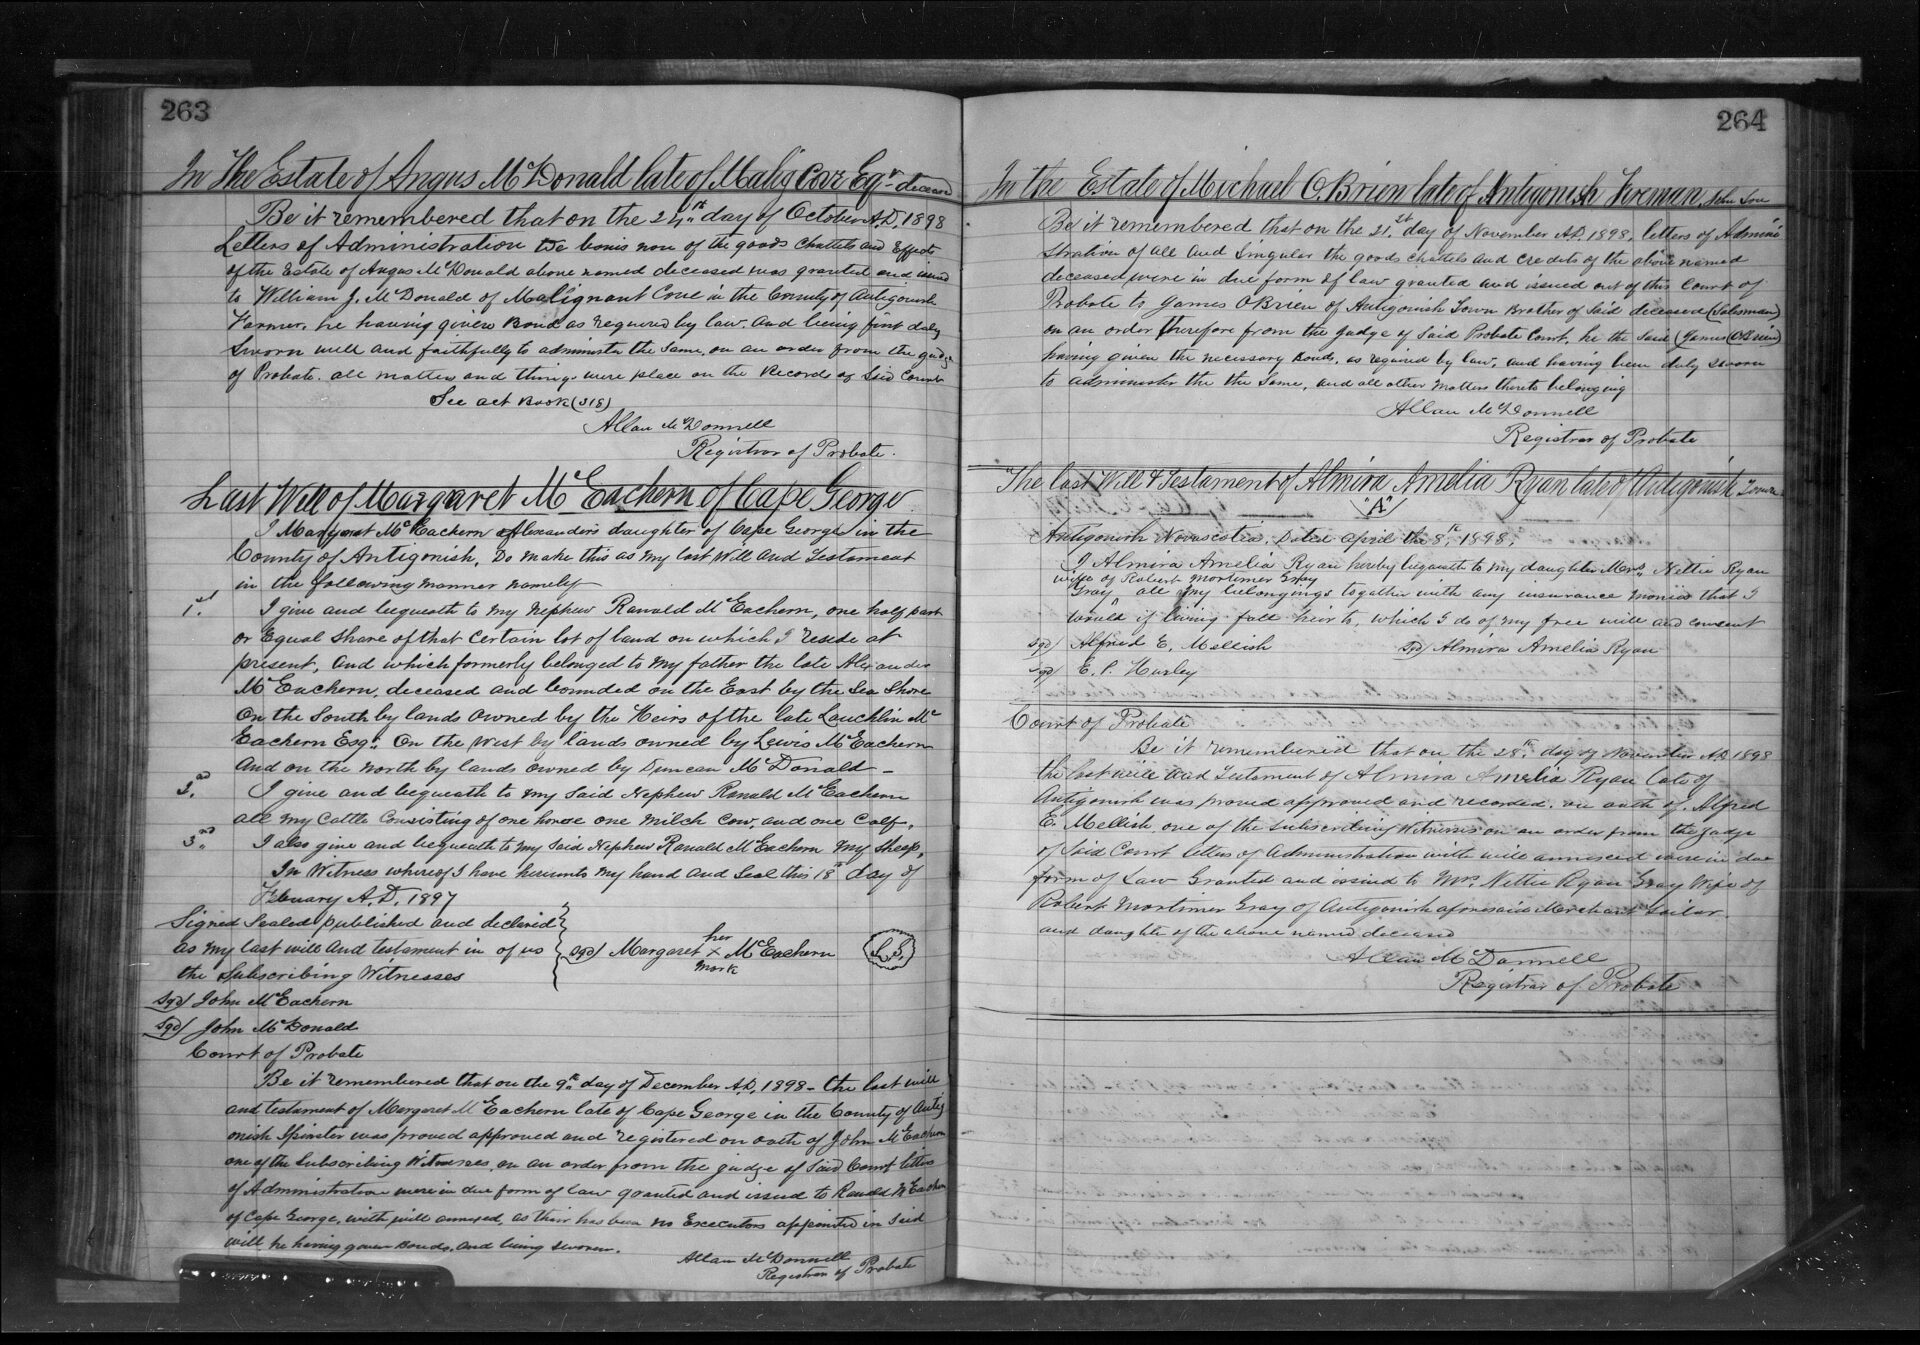 263
In The Estate of Angus McDonald late of Malig Cove Eqr deceased
Be it remembered that on the 24th day of October A.D. 1898
Letters of Administration De bonis non of the goods chattels and Effects
of the Estate of Angus McDonald above named deceased was granted and issued
to William J. McDonald of Malignant Cove in the County of Antigonish
Farmer, he having given Bond as required by law and being first duly
sworn well and faithfully to administer the same, on an order from the judge
of Probate. all matters and things were place on the Records of Said Court
See act Book (318)
Allan McDonnell
Registrar of Probate.
Last Will of Margaret McEachern of Cape George
I Margaret McEachern Alexanders daughter of Cape George in the
County of Antigonish, Do make this as my last Will and Testament
in the following manner namely
1st. I give and bequeath to my nephew Ranald McEachern, one half part
or Equal share of that certain lot of land on which I reside at
present, and which formerly belonged to my father the late Alexander
McEachern, deceased and bounded on the East by the Sea Shore
On the South by lands owned by the Heirs of the late Lauchlin Mc
Eachern Esqr. On the West by lands owned by Lewis McEachern
and on the north by lands owned by Duncan McDonald —
2nd. I give and bequeath to my said Nephew Ranald McEachern
all my Cattle Consisting of one horse one milch cow, and one calf,
3rd. I also give and bequeath to my said Nephew Ranald McEachern my sheep,
In Witness whereof I have hereunto my hand and Seal this 18th day of
February A.D. 1897
Signed Sealed published and declared
as my last will and testament in of us
the Subscribing Witnesses
sgd) Margaret her x mark McEachern L.S.
sgd) John McEachern
sgd) John McDonald
Court of Probate
Be it remembered that on the 9th day of December A.D. 1898 – the last will
and testament of Margaret McEachern late of Cape George in the County of Antig
onish Spinster was proved approved and registered on oath of John McEachern
one of the Subscribing Witnesses, on an order from the judge of Said Court letters
of Administration were in due form of law granted and issued to Ranald McEachern
of Cape George, with will annexed, as their has been no Executors appointed in Said
will he having given Bonds, and being sworn.
Allan McDonnell
Registrar of Probate
264
In the Estate of Michael OBrien late of Antigonish
Be it remembered that on the 21st day of November A.D. 1898, letters of Admini
stration of all and Singular the goods chattels and credits of the above named
deceased were in due form of law granted and issued out of this Court of
Probate to James OBrien of Antigonish Town Brother of Said deceased (Salesman)
on an order therefore from the judge of Said Probate Court, he the said (James OBrien)
having given the necessary Bonds, as required by law, and having been duly sworn
to administer the the same, and all other matters thereto belonging
Allan McDonnell
Registrar of Probate
The last Will & Testament of Almira Amelia Ryan late of Antigonish Town
"A"
Antigonish Novascotia, Dated April the 8th, 1898,
I Almira Amelia Ryan hereby bequeath to my daughter Mrs. Nettie Ryan
wife of Robert Mortimer Gray
Gray all my belongings together with any insurance monies that I
would if living fall heir to, which I do of my free will and consent
sgd) Alfred E. Mellish sgd) Almira Amelia Ryan
sgd) E. P. Hurley
Court of Probate
Be it remembered that on the 28th day of November A.D. 1898
the last will and Testament of Almira Amelia Ryan late of
Antigonish was proved approved and recorded, on oath of, Alfred
E. Mellish one of the subscribing Witnesses on an order from the judge
of Said Court letters of Administration with will annexed were in due
form of Law Granted and issued to Mrs. Nettie Ryan Gray Wife of
Robert Mortimer Gray of Antigonish aforesaid Merchant Tailor.
and daughter of the above named deceased
Allan McDonnell
Registrar of Probate